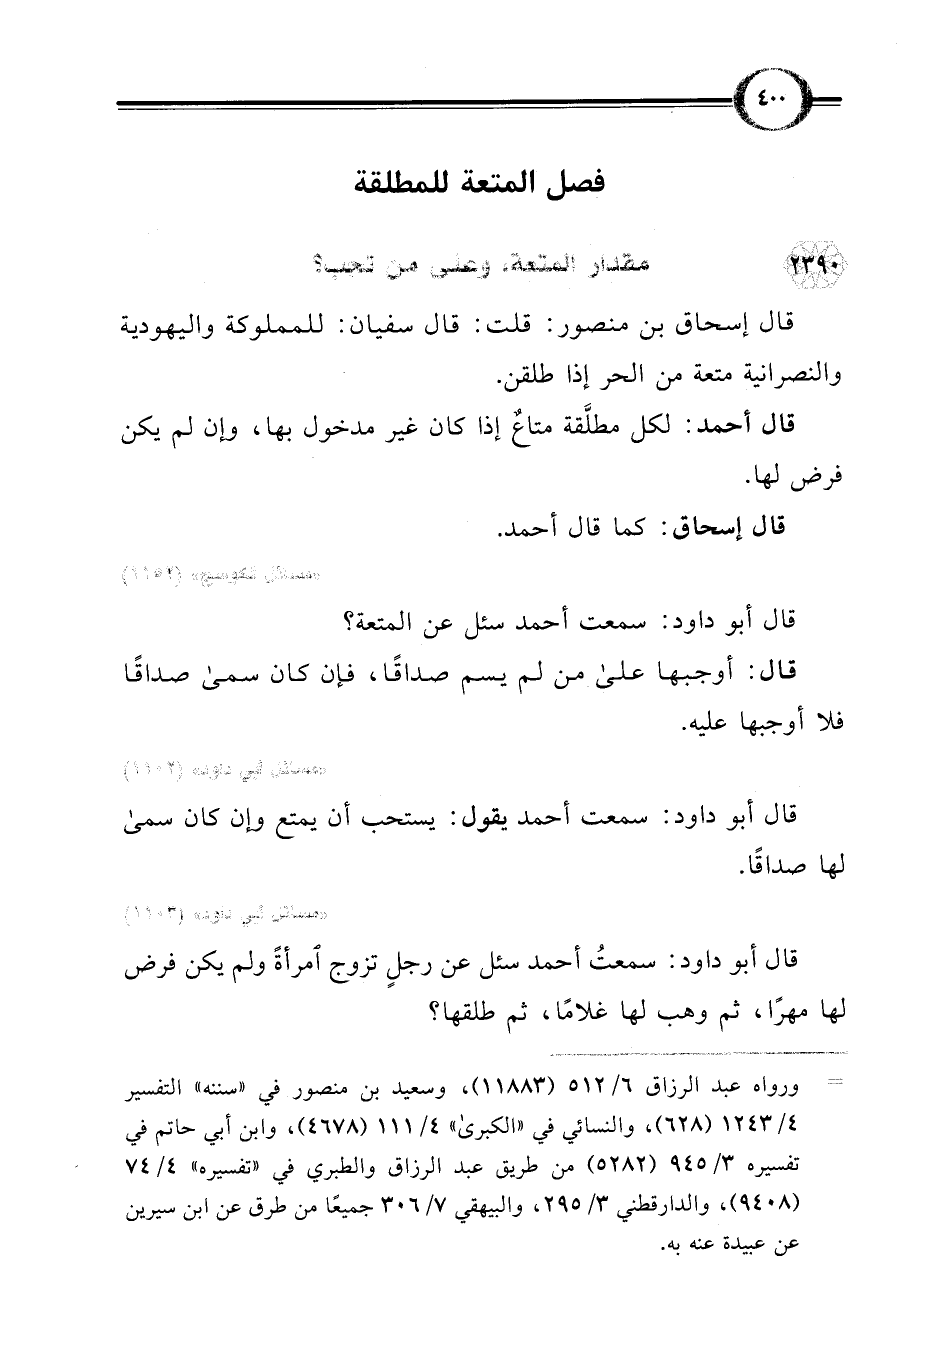 ٤٠٠
فصل المتعة للمطلقة
٢٣٩٠
مقدار المتعة، وعلى من تجب؟
قال إسحاق بن منصور: قلت: قال سفيان: للمملوكة واليهودية
والنصرانية متعة من الحر إذا طلقن.
قال أحمد: لكل مطلَّقة متاعٌ إذا كان غير مدخول بها، وإن لم يكن
فرض لها.
قال إسحاق: كما قال أحمد.
«مسائل الكوسج» (١١٥٢)
قال أبو داود: سمعت أحمد سئل عن المتعة؟
قال: أوجبها علىٰ من لم يسم صداقًا، فإن كان سمىٰ صداقًا
فلا أوجبها عليه.
«مسائل أبي داود» (١١٠٢)
قال أبو داود: سمعت أحمد يقول: يستحب أن يمتع وإن كان سمىٰ
لها صداقًا.
«مسائل أبي داود» (١١٠٣)
قال أبو داود: سمعتُ أحمد سئل عن رجلٍ تزوج ٱمرأةً ولم يكن فرض
لها مهرًا، ثم وهب لها غلامًا، ثم طلقها؟
= ورواه عبد الرزاق ٦/ ٥١٢ (١١٨٨٣)، وسعيد بن منصور في «سننه» التفسير
٤/ ١٢٤٣ (٦٢٨)، والنسائي في «الكبرىٰ» ٤/ ١١١ (٤٦٧٨)، وابن أبي حاتم في
تفسيره ٣/ ٩٤٥ (٥٢٨٢) من طريق عبد الرزاق والطبري في «تفسيره» ٤/ ٧٤
(٩٤٠٨)، والدارقطني ٣/ ٢٩٥، والبيهقي ٧/ ٣٠٦ جميعًا من طرق عن ابن سيرين
عن عبيدة عنه به.